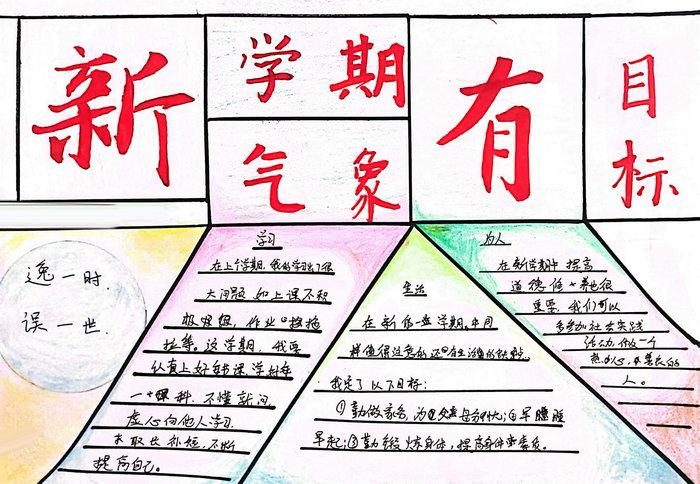 新
学期
气象
有
目标
逸一时.
误一世.
学习
在上个学期,我的学习出了很
大问题,如上课不积
极思想,作业拖拖
拉等。这学期,我要
认真上好每节课,学好每
一个课科.不懂就问
虚心向他人学习.
求取长补短,不断
提高自己。
生活
在新的一学期.中同
样值得注意的还有生活里的缺点.
我定了以下目标:
①勤做家务,为父母分忧;②早睡
早起;③勤锻炼身体,提高身体素质。
为人
在新学期中提高
道德修养也很
重要,我们可以
多参加社会实践
活动,做一个
热心,有善良的
人。